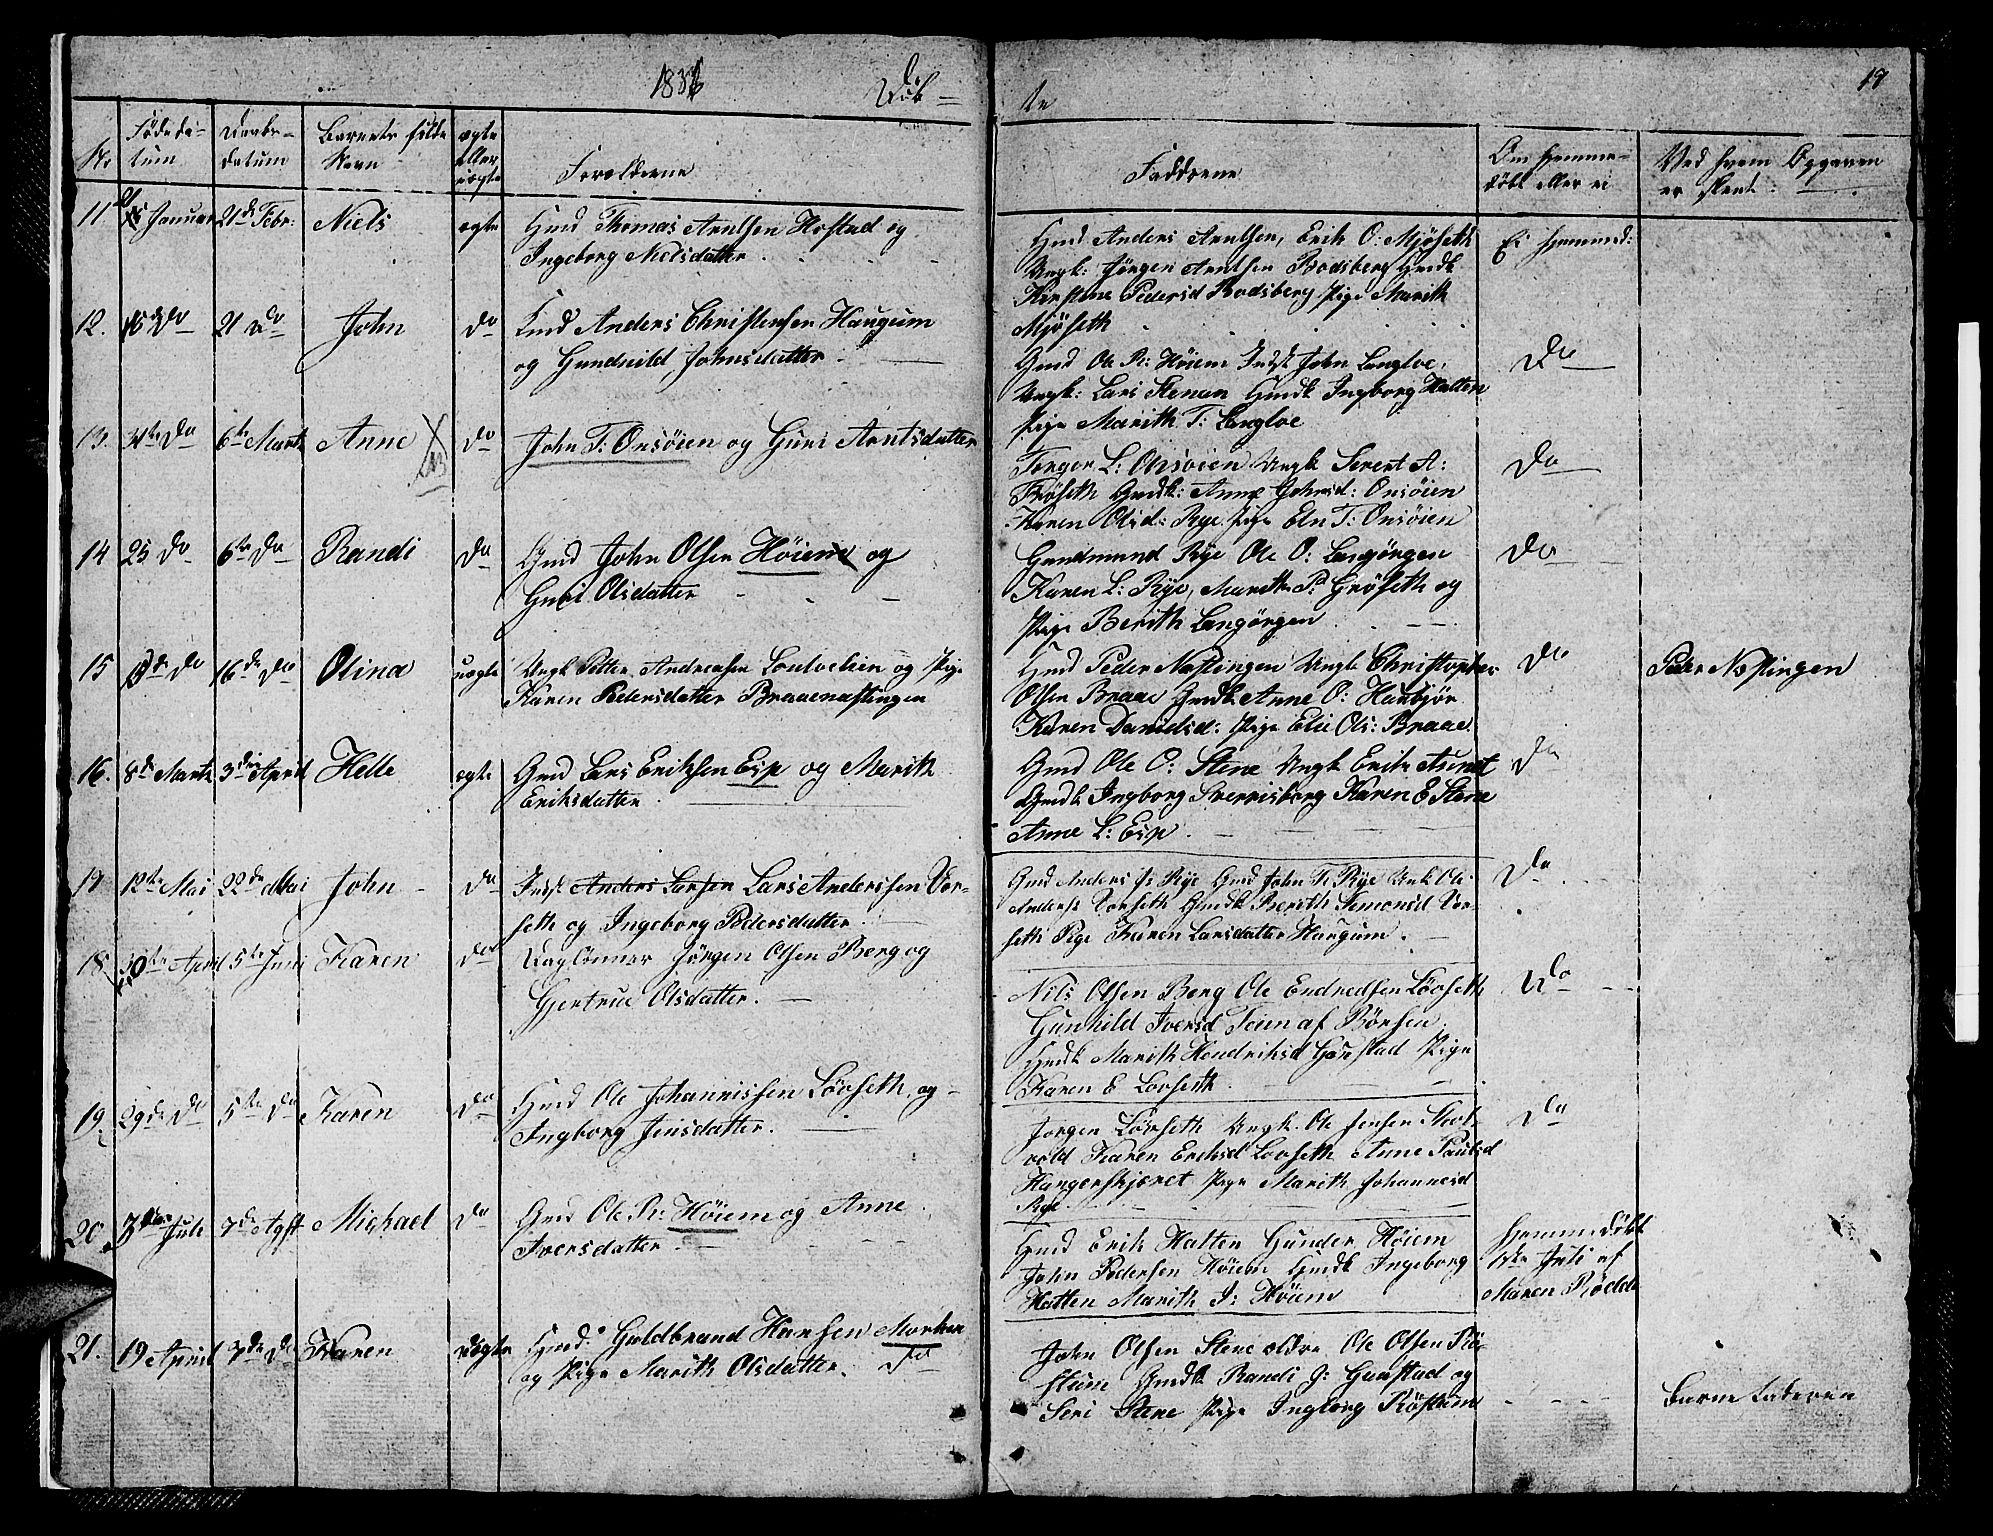 1836
Døb-
te
19
No
Fødeda-
tum
Daabs-
datum
Barnets fulde
Navn
ægte
eller
uægte
Forældrene
Faddrene
Om hjemme-
døbt eller ei
Ved hvem Opgaven
er skeet.
11
Januar
21de Febr:
Niels
ægte
Gmd Thomas Arntsen Hostad og
Ingeborg Nielsdatter
Gmd Anders Arntsen, Erik O: Mjøseth
Ungk: Jørgen Arntsen Rodsberg Gmdk
Kirstine Pedersd Rodsberg Pige Marith
Mjøseth
Ei hjemmed:
12.
do
21 do
John
do
Gmd Anders Christensen Haugum
og Gundnild Johnsdatter
Gmd Ole P: Høiem Indst John Langloe,
Ungk: Lars Stenan Gmdk Ingborg Hatten
Pige Marith T: Langloe
do
13.
do
6te Marts
Anne
do
John T: Onsøien og Guri Arntsdatter
Torger L: Onsøien Ungk Sivert A:
Frøseth Gmdk: Anne Johnsd: Onsøien
Karen Olsd: Rye Pige Eln T: Onsøien
do
14
25 do
6te do
Randi
do
Gmd John Olsen Høiem og
Guri Olsdatter
Gundmund Rye Ole O: Langørgen
Karen L: Rye, Marith P: Grøseth og
Pige Berith Langørgen
do
15
do
16de do
Olina
uægte
Ungk Petter Andreasen og Pige
Karen Pedersdatter Braaenastingen
Gmd Peder Nastingen Ungk Christopher
Olsen Braae Gmdk Anne O: Haubjør
Karen Danielsd: Pige Elie Ols: Braae
do
Peder Nastingen
16.
8de Marts
3die April
Helle
ægte
Gmd Lars Eriksen Esp og Marith
Eriksdatter
Gmd Ole O: Stene Ungk Erik
Gmdk Ingborg Sverrisborg Karen E Stene
Anne L: Esp
do
17
12te Mai
22de Mai
John
do
Indst Anders Larsen Lars Anderssen Vor-
seth og Ingeborg Pedersdatter
Gmd Anders P: Rye Gmd John T: Rye Unk Ole
Anders Vorseth Gmdk Berith Simonsd Vor-
seth Pige Karen Larsdatter Haugum.
do
18
April
5te Juni
Karen
do
Daglønner Jørgen Olsen Berg og
Gjertrue Olsdatter.
Nils Olsen Berg Ole Endredsen Løvseth
Gunhild Iversd Teien af Børsen
Gmdk Marith Hendriksd Gørstad Pige
Karen E Lovseth
do
19.
29de do
5te do
Karen
do
Gmd Ole Johannissen Løvseth og
Ingborg Jensdatter.
Jørgen Løvseth Ungk. Ole Jensen Skol-
vold Karen Eriksd Lovseth Anne Paulsd
Hangerskjæret Pige Marith Johannesd
Rye
do
20.
Juli
7de Agst
Michael
do
Gmd Ole P: Høiem og Anne
Iversdatter
Gmd Erik Hatten Gunder Høiem
John Pedersen Høiem Gmdk Ingeborg
Hatten Marith I: Høiem
Hjemmedøbt
Juli af
Maren Rødde
21.
19 April
7de do
Karen
uægte
Gmd Guldbrand Hansen Morken
og Pige Marith Olsdatter.
John Olsen Stene ældre Ole Olsen Rø-
stum Gmdk Randi J: Gunstad og
Seri Stene Pige Ingborg Røstum